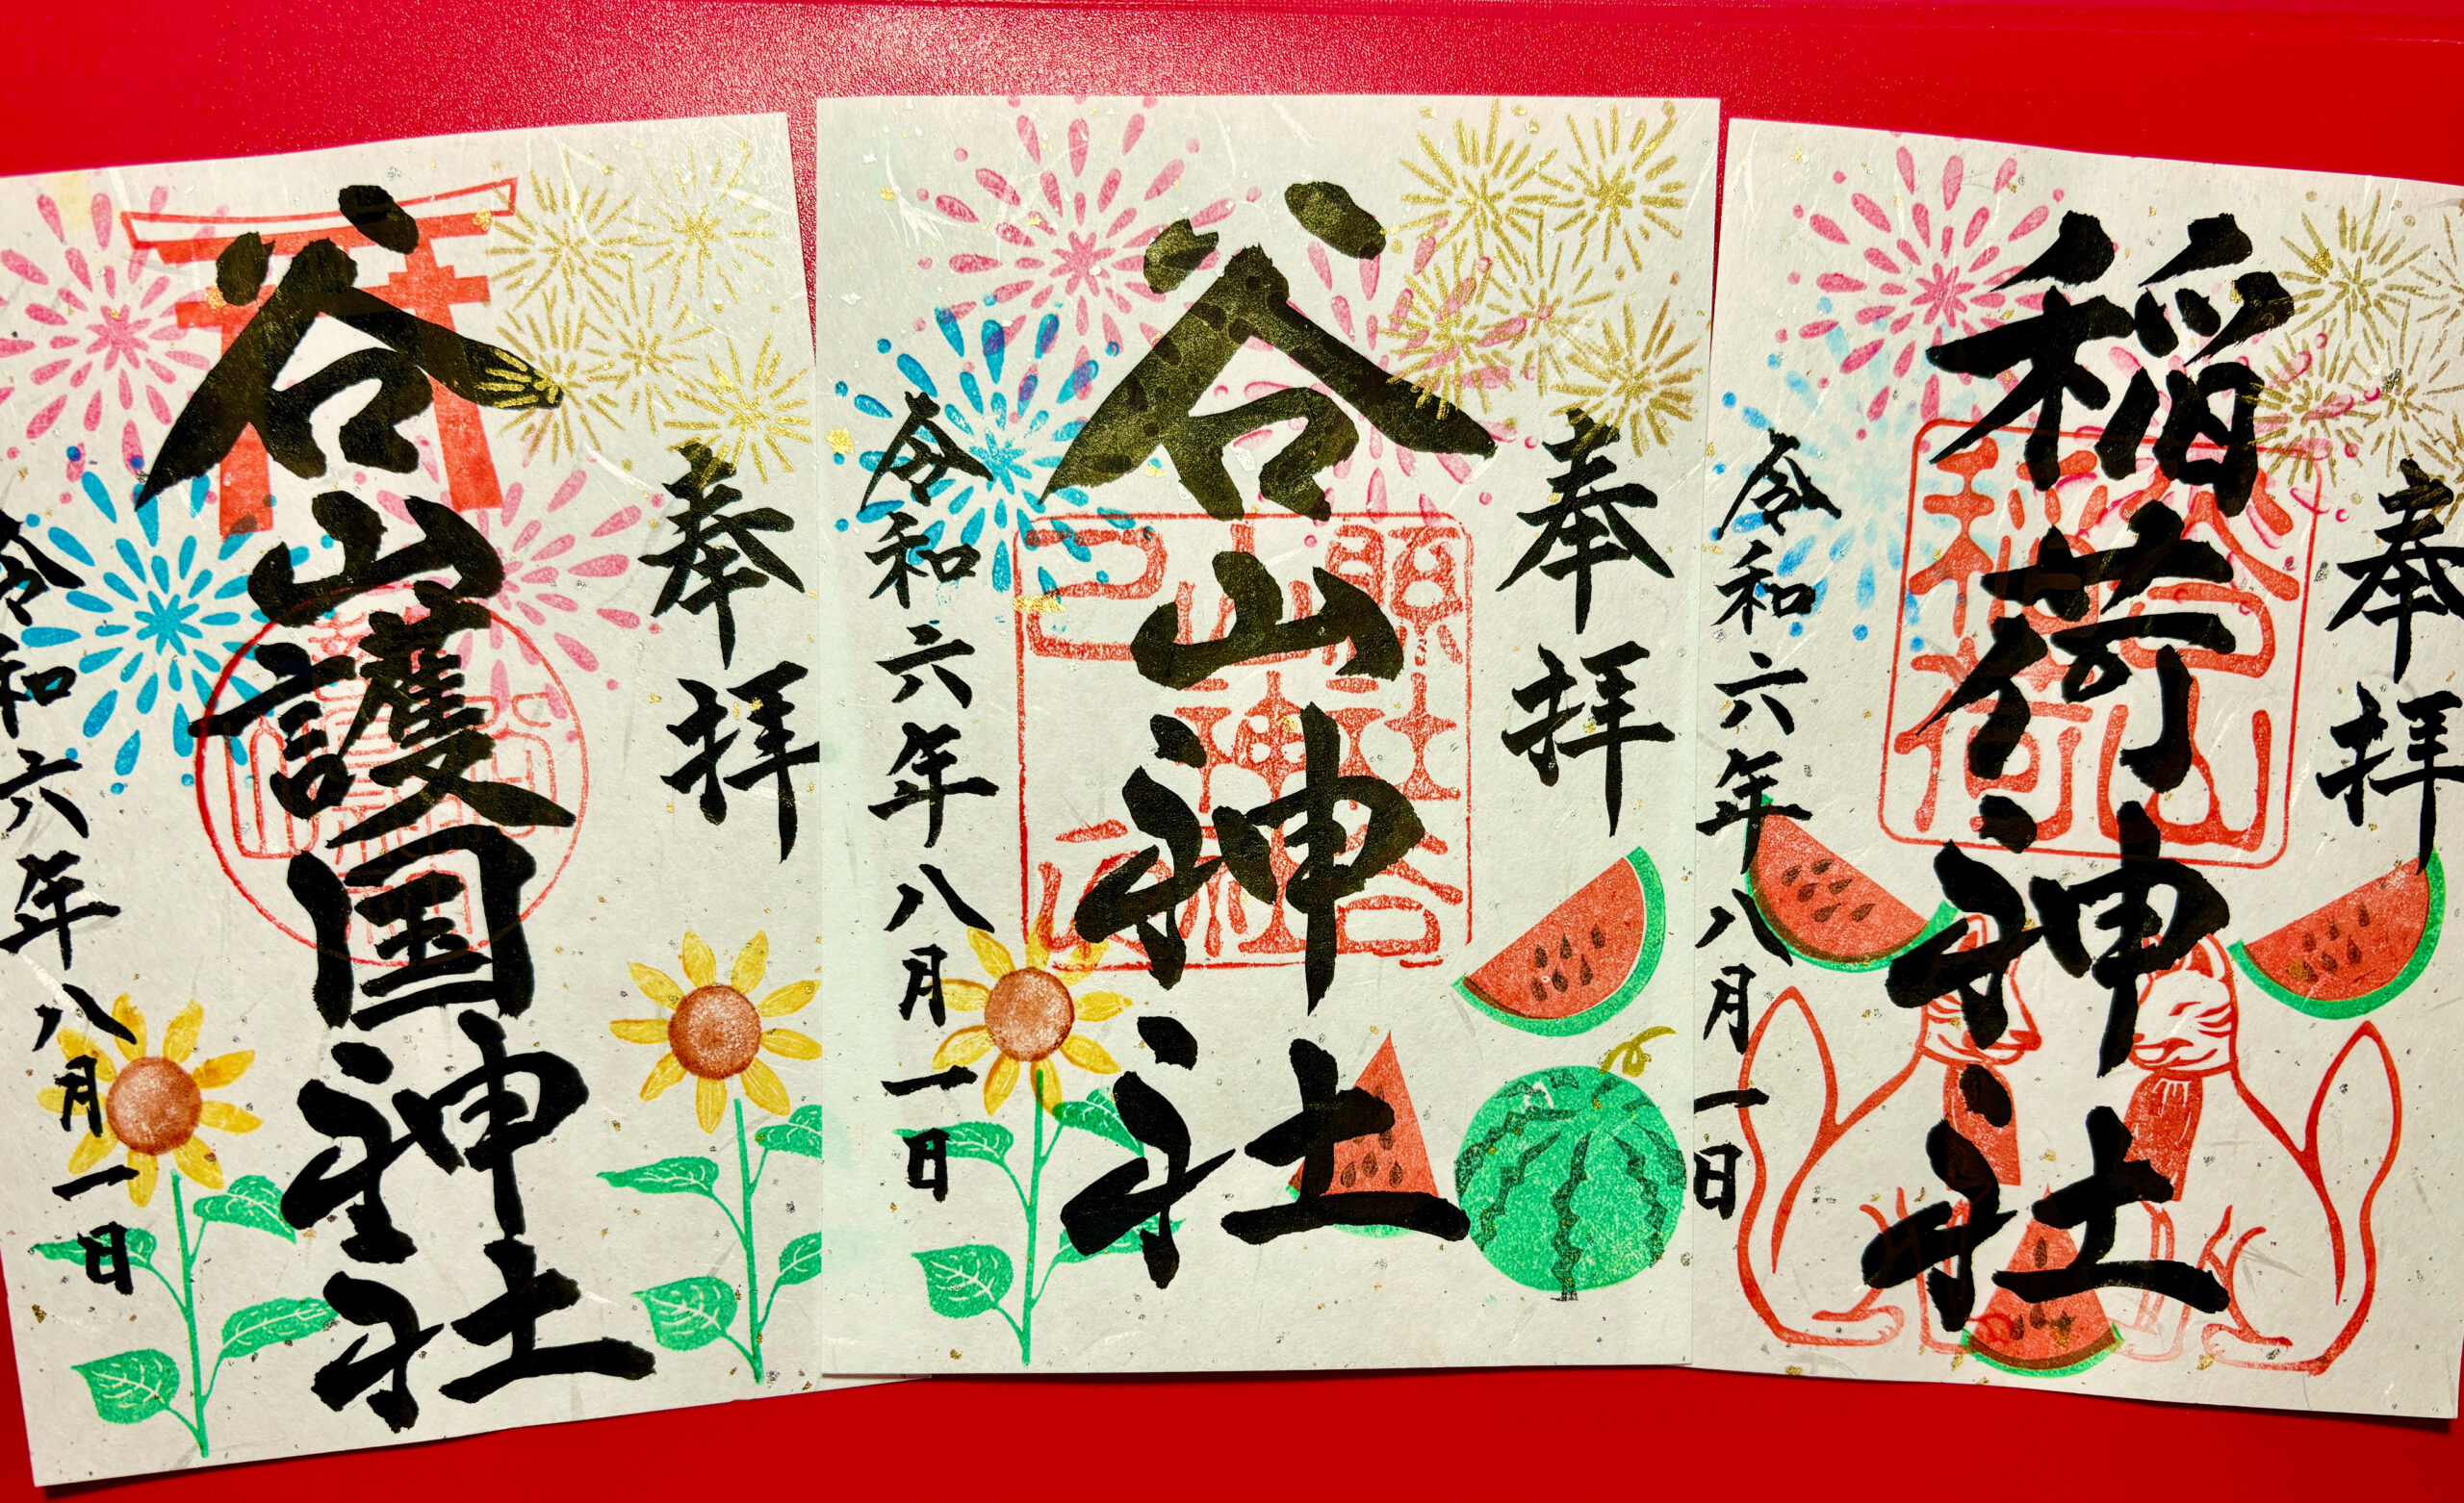 奉拝
谷山護国神社
令和六年八月一日
奉拝
谷山神社
令和六年八月一日
奉拝
稲荷神社
谷山
稲荷
令和六年八月一日